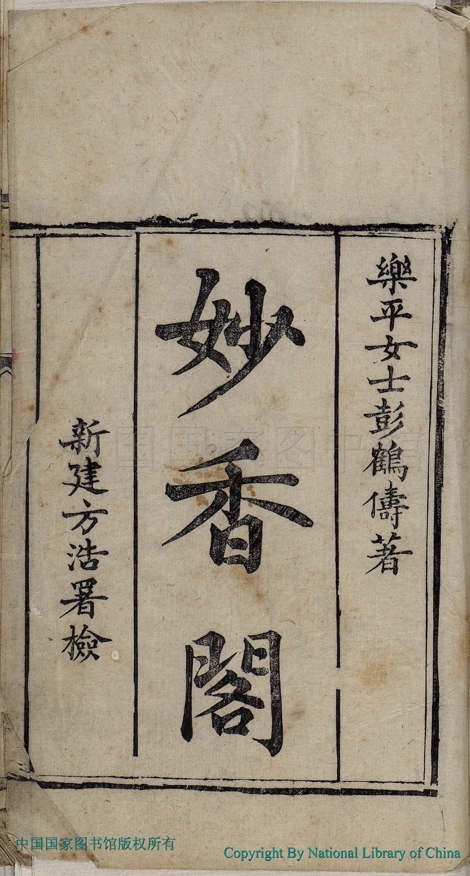 樂平女士彭鶴儔著
妙香閣
新建方浩署檢
中国国家图书馆版权所有
Copyright By National Library of China